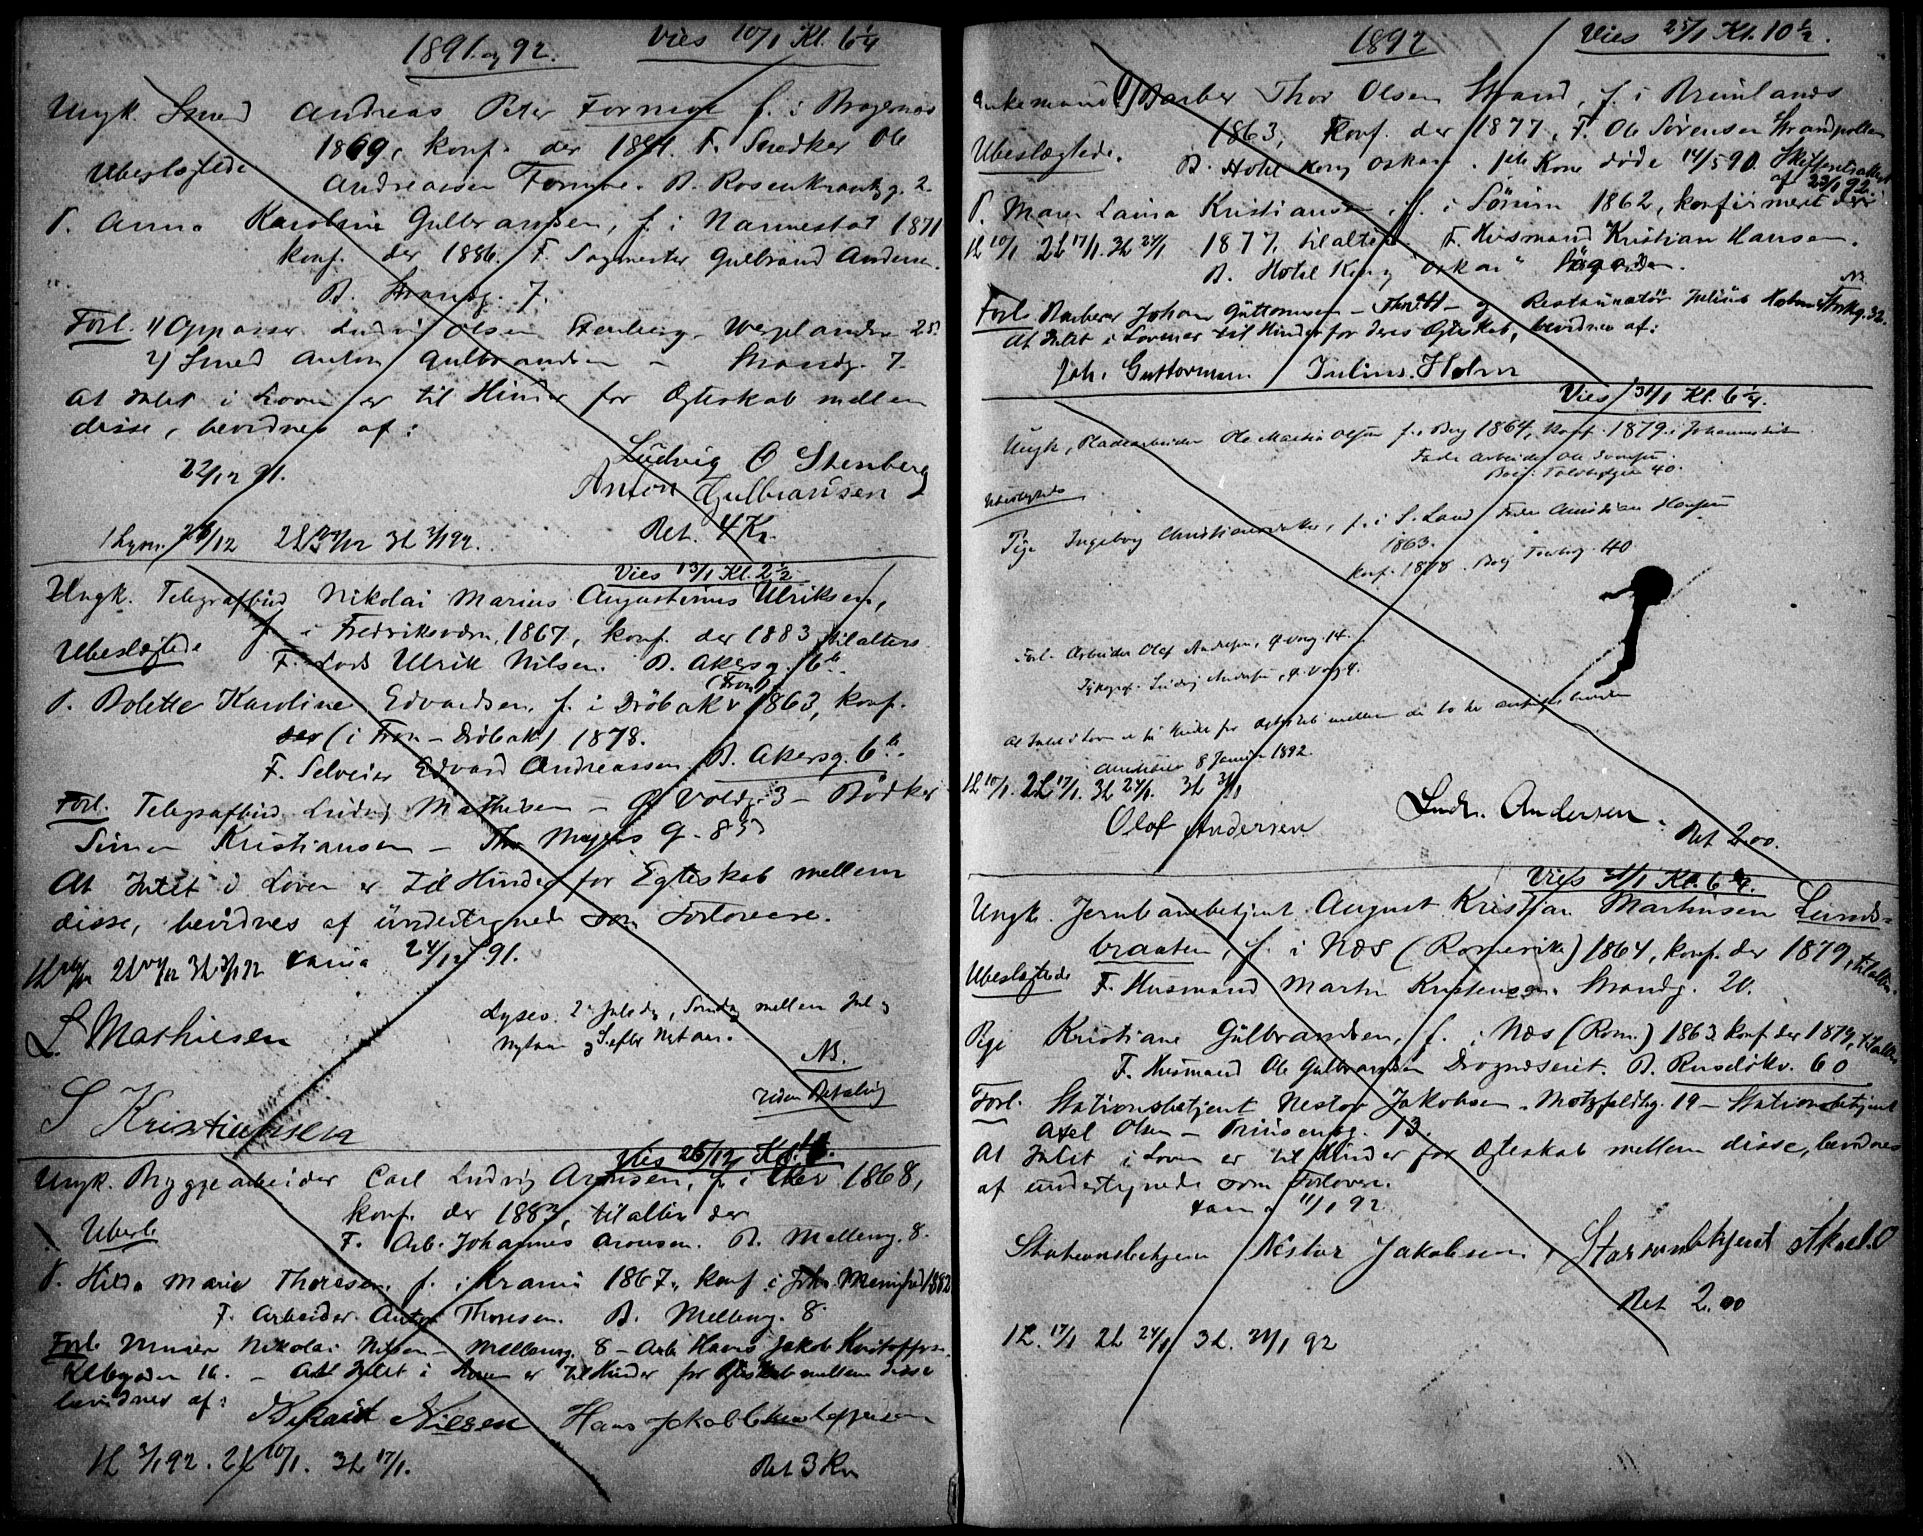 1891 og 92.
Vies 10/1 Kl. 6 1/4
Ungk. Smed Andreas Peter Formoe f. i Bragernæs
1869, konf. der 1884. F. Snedker Ole
Ubeslægtede
Andreasen Formoe. B. Rosenkrantzg. 2.
P. Anna Karoline Gulbransen, f. i Nannestad 1871
konf. der 1886. F. Sagmester Gulbrand Andersen.
B. Strandg. 7.
Forl. 1) Oppasser Ludvig Olsen Stenberg, 25
2) Smed Anton Gulbrandsen – Strandg. 7.
At Intet i Loven er til Hinder for Egteskab mellem
disse, bevidnes af:
22/12 91.
Ludvig O Stenberg
Anton Gulbransen
1 Lysn. 26/12 2L 3L 3/1 92.
Bet. 4 Kr.
Vies 13/1 Kl. 2 1/2
Ungk. Telegrafbud Nikolai Marius Augustinus Ulriksen,
f. i Fredriksværn, 1867, konf. der 1883, til alters
Ubeslægtede
F. Lods Ulrik Nilsen. B. Akersg. 6 b.
P. Bolette Karoline Edvardsen, f. i Drøbak (Fron) 1863, konf.
der (i Fron – Drøbak) 1878.
F. Selveier Edvard Andreassen. B. Akersg. 6 b.
Forl. Telegrafbud Ludvig Mathisen – Voldg. 3 – Bødker
Simen Kristiansen – Thv Meyers g. 85
At Intet i Loven er til Hinder for Egteskab mellem
disse, bevidnes af undertegnede som Forlovere.
1L 26/12 2L 3L 3/1 92 24/12 91.
Lyses 2. Juledag, Søndag mellem Jul og
Nytaar og S. efter Nytaar.
L. Mathiesen
NB.
uden Betaling
S Kristiansen
Vies Kl.
Ungk. Bryggearbeider Carl Ludvig Aronsen, f. i Eker 1868,
konf. der 1883, til alters der
Ubesl.
F. Arb. Johannes Aronsen. B. Mellemg. 8.
P. Hilda Marie Thoresen, f. i Kra 1867, konf. i Joh. Menighed 1882
F. Arbeider Anton Thoresen. B. Mellemg. 8.
Forl. Murer Nikolai Nilsen – Mellemg. 8 – Arb. Hans Jakob Kristoffersen.
16. – At Intet i Loven er til Hinder for Egteskab mellem disse
bevidnes af:
Nikolai Nilsen Hans Jakob Kristoffersen
1L 3/1 92. 2L 10/1. 3L 17/1.
Bet 3 Kr
1892
Vies 25/1 Kl. 10 1/2.
Enkemand Barber Thor Olsen Strand, f. i Brunlands
1863, Konf. der 1877, F. Ole Sørensen
Ubeslægtede.
B. Hotel Kong Oskar. Kone døde 14/5 90.
af 23/1 92.
P. Maren Laura Kristiansen, f. i Sørum 1862, konfirmeret der
1L 10/1 2L 17/1. 3L 24/1 1877, til alters F. Husmand Kristian Hansen.
B. Hotel Kong "Oskar"
Forl. Barberer Johan Guttormsen – – og Restauratør Julius Holm Storg. 32.
At Intet i Loven er til Hinder for deres Egteskab, bevidnes af:
Joh. Guttormsen Julius. Holm
Vies 31/1 Kl. 6 1/4.
Ungk. Pladearbeider Ole Martin Olsen f. i Berg 1864, konf. 1879 i Johannes
Fader Arbeider Ole
Boej: Toldbodgd 40.
Ubeslægtede
Pige Ingeborg Christiansdatter, f. i S. Land Fader Christian Hansen
1863.
konf. 1878. Boj Toldbodg. 40
Forl. Arbeider Olaf Andersen, 14.
Typograf Ludvig Andersen, 9.
At Intet i Loven er til Hinder for Egteskab mellem de to
Christiania 8 Januar 1892.
1L 10/1. 2L 17/1. 3L 24/1. 3L 31/1
Olaf Andersen
Ludv. Andersen.
Bet 2.00.
Vies 31/1 Kl. 6 1/4.
Ungk. Jernbanebetjent August Kristian Martinsen Lunds-
braaten, f. i Næs (Romerike) 1864, konf. der 1879, til alters.
Ubeslægtede
F. Husmand Martin Kristensen. Strandg. 20.
Pige Kristiane Gulbrandsen, f. i Næs (Rom.) 1863 konf. der 1879, til alters
F. Husmand Ole Gulbrandsen Drognæseiet. B. Ruseløkv. 60
Forl. Stationsbetjent Nestor Jakobsen. Motzfeldtsg. 19 – Stationsbetjent
Axel Olsen – Prinsensg. 13.
At Intet i Loven er til Hinder for Egteskab mellem disse, bevidnes
af undertegnede som Forlovere.
11/1 92.
Stationsbetjent Nestor Jakobsen, Stationsbetjent Aksel. O
Bet 2.00
1L. 17/1 2L 24/1 3L. 31/1 92